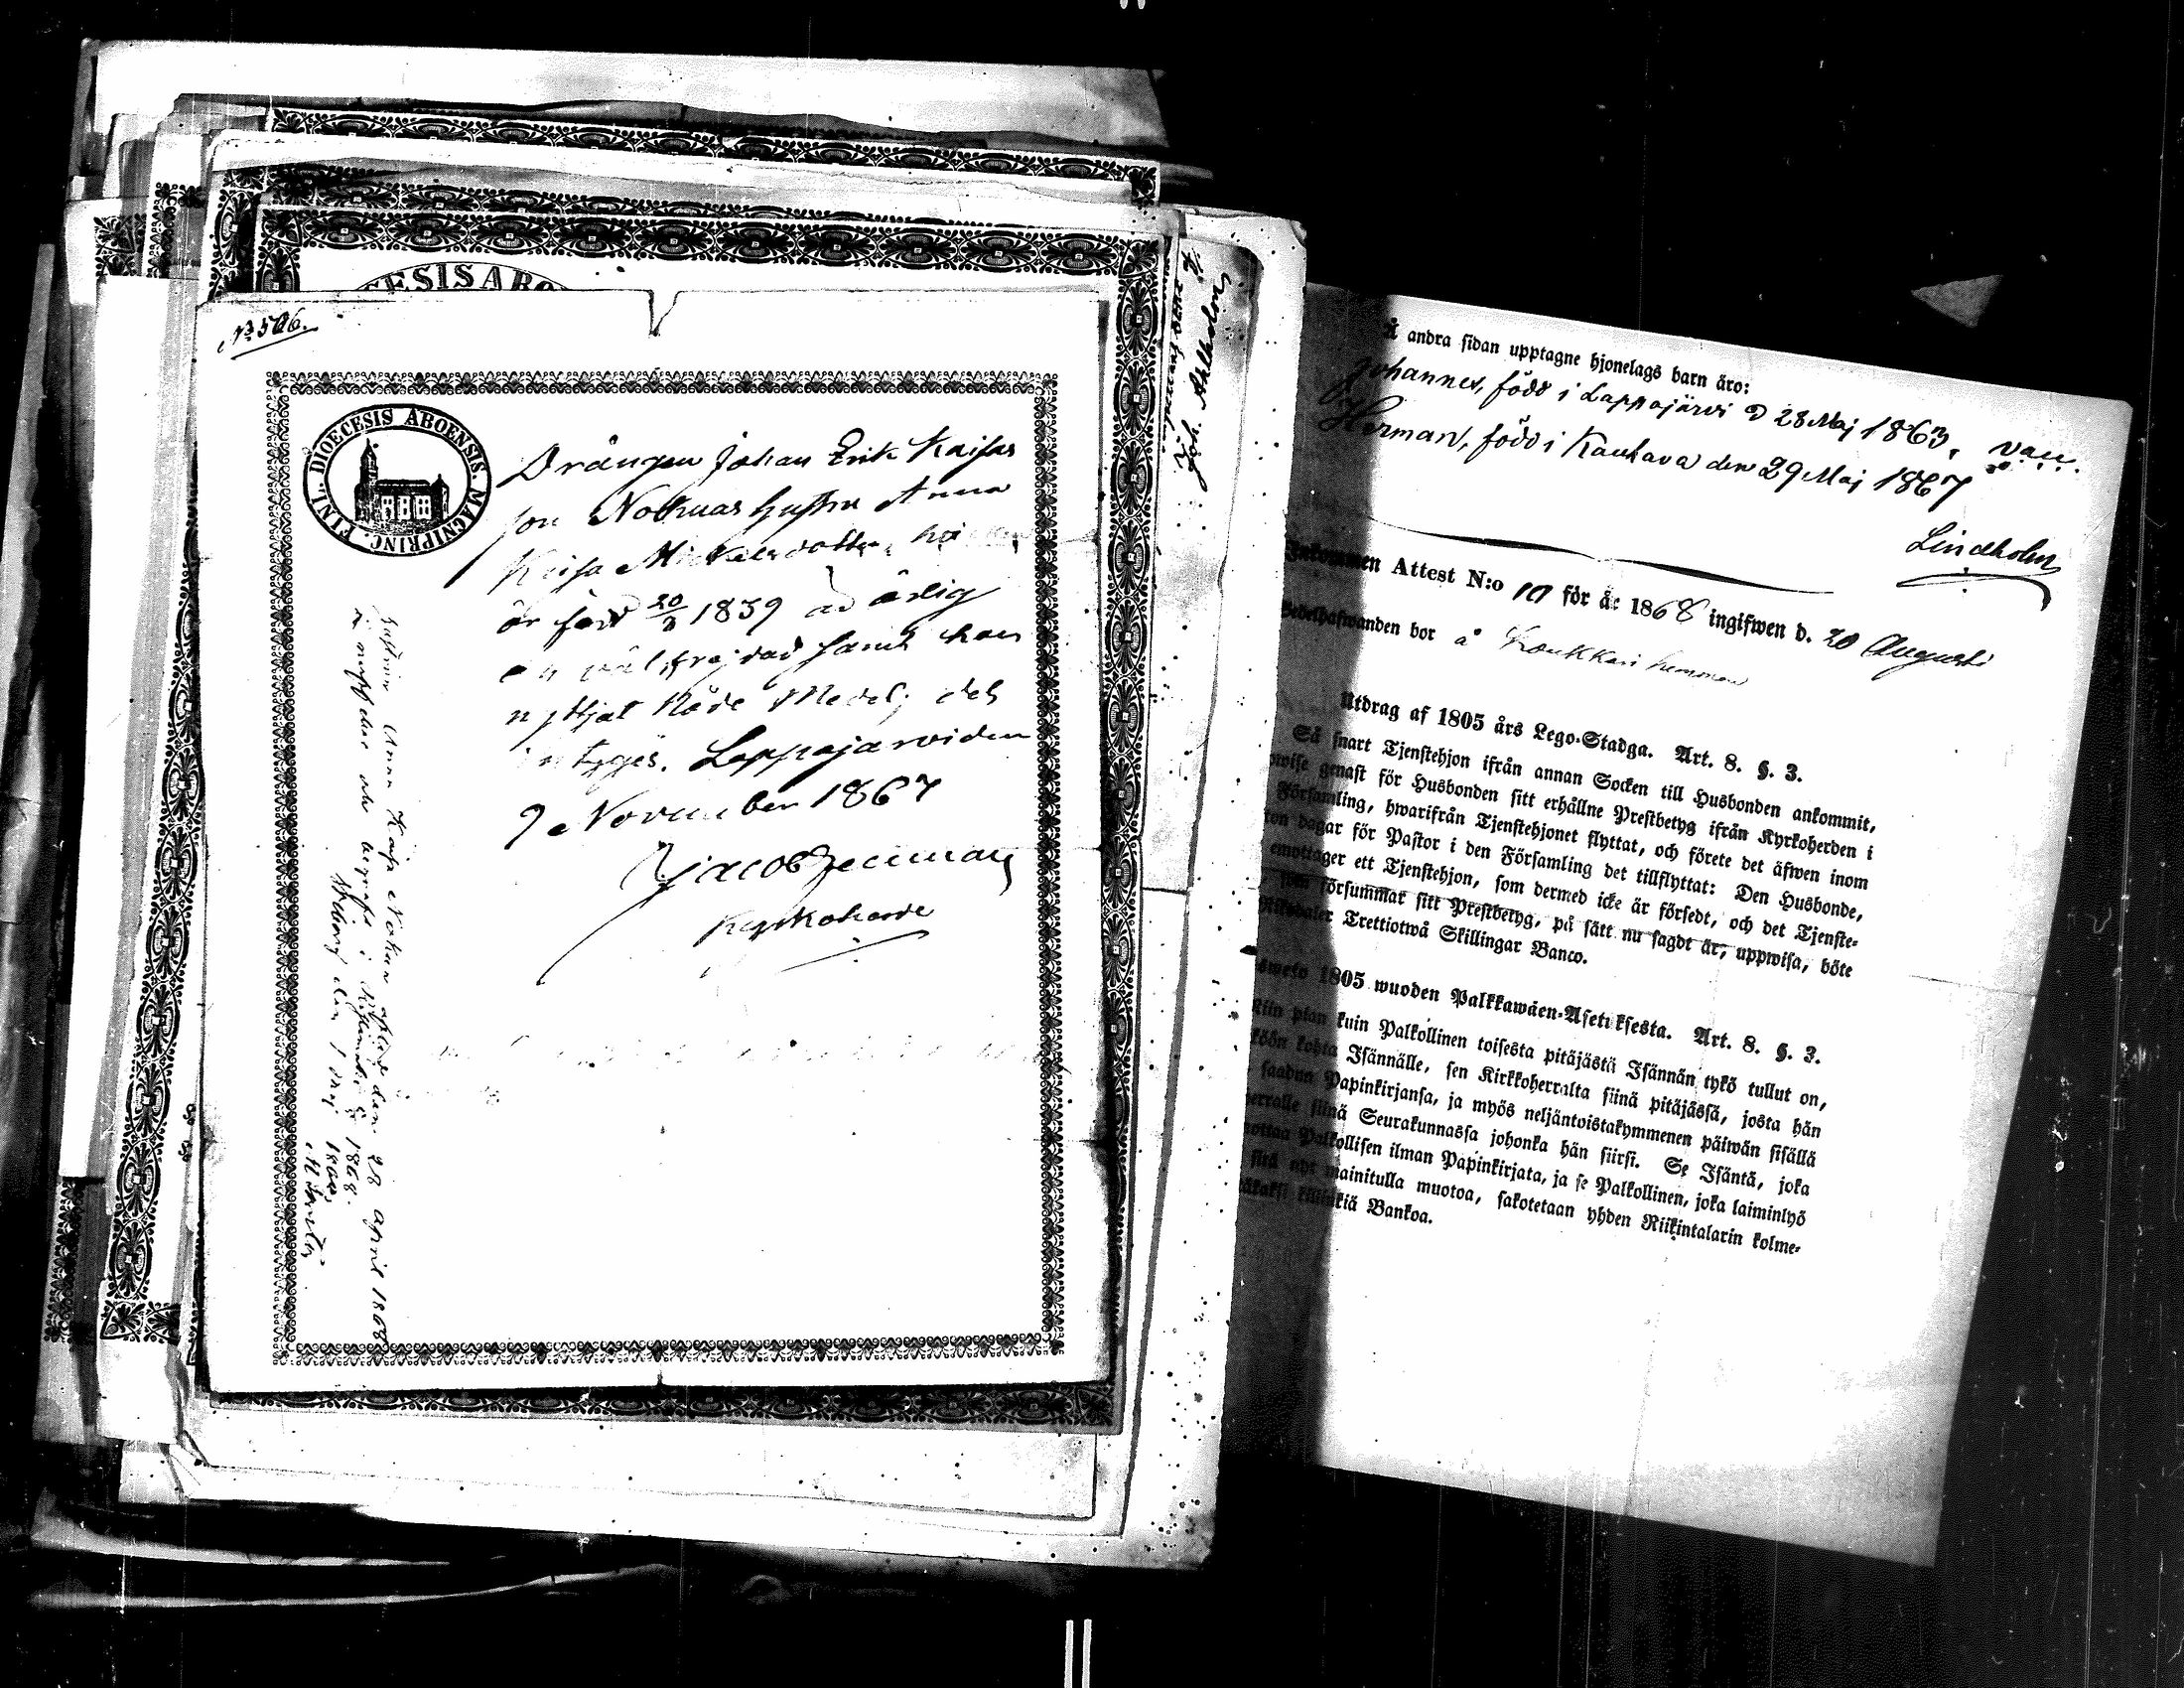 № 506.
DIOECESIS ABOENSIS. MAGNI PRINC. FINL.
Drängen Johan Erik Kaisas
son Nokuas hustru Anna
Kaisa Mickelsdotter,
är född 20/3 1839 ärlig
välfrejdad samt har
nyttjat Nåde Medel; det
intygas. Lappajärvi den
9 November 1867
Jacob
Kyrkoherde
Hustrun Anna Kaisa Nokua afled den 28 april 1868
begrafs i 1868.
den 1 maj 1868.
ESIS ABO
Joh. Ahlholm
Å andra sidan upptagne hjonelags barn äro:
Johannes, född i Lappajärvi d 28 Maj 1863, vacc.
Herman, född i Kauhava den 29 Maj 1867
Lindholm
Inkommen Attest N:o 10 för år 1868 ingifwen d. 20 Augusti
Sedelhafwanden bor å Loukkari hemman
Utdrag af 1805 års Lego-Stadga. Art. 8. §. 3.
Så snart Tjenstehjon ifrån annan Socken till Husbonden ankommit,
wise genast för Husbonden sitt erhållne Prestbetyg ifrån Kyrkoherden i
Församling, hwarifrån Tjenstehjonet flyttat, och förete det äfwen inom
ton dagar för Pastor i den Församling det tillflyttat: Den Husbonde,
emottager ett Tjenstehjon, som dermed icke är försedt, och det Tjenste-
som försummar sitt Prestbetyg, på sätt nu sagdt är, uppwisa, böte
Riksdaler Trettiotwå Skillingar Banco.
1805 wuoden Palkkawäen-Asetuksesta. Art. 8. §. 3.
Niin pian kuin Palkollinen toisesta pitäjästä Isännän tykö tullut on,
köön kohta Isännälle, sen Kirkkoherralta siinä pitäjässä, josta hän
saadun Papinkirjansa, ja myös neljäntoistakymmenen päiwän sisällä
herralle siinä Seurakunnassa johonka hän siirsi. Se Isäntä, joka
ottaa Palkollisen ilman Papinkirjata, ja se Palkollinen, joka laiminlyö
sitä nyt mainitulla muotoa, sakotetaan yhden Riikintalarin kolme-
killinkiä Bankoa.